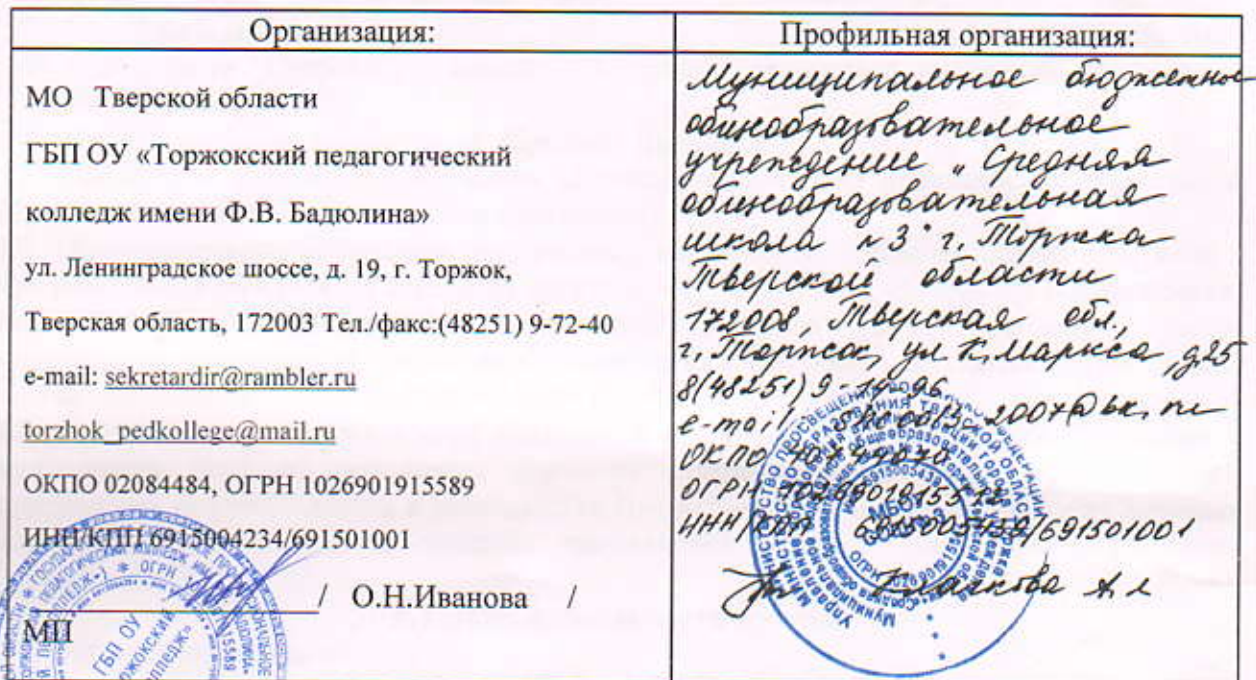 Организация:
МО Тверской области
ГБП ОУ «Торжокский педагогический
колледж имени Ф.В. Бадюлина»
ул. Ленинградское шоссе, д. 19, г. Торжок,
Тверская область, 172003 Тел./факс:(48251) 9-72-40
e-mail: sekretardir@rambler.ru
torzhok_pedkollege@mail.ru
ОКПО 02084484, ОГРН 1026901915589
ИНН/КПП 6915004234/691501001
/ О.Н.Иванова /
МП
ГБП ОУ
Профильная организация:
Муниципальное бюджетное
общеобразовательное
учреждение "Средняя
общеобразовательная
школа №3" г. Торжка
Тверской области
172008, Тверская обл.,
г. Торжок, ул. К. Маркса, д25
8(48251) 9-14-96
e-mail 2007@bk.ru
ОКПО
ОГРН
ИНН/КПП 6915005439/691501001
А Л
МБОУ